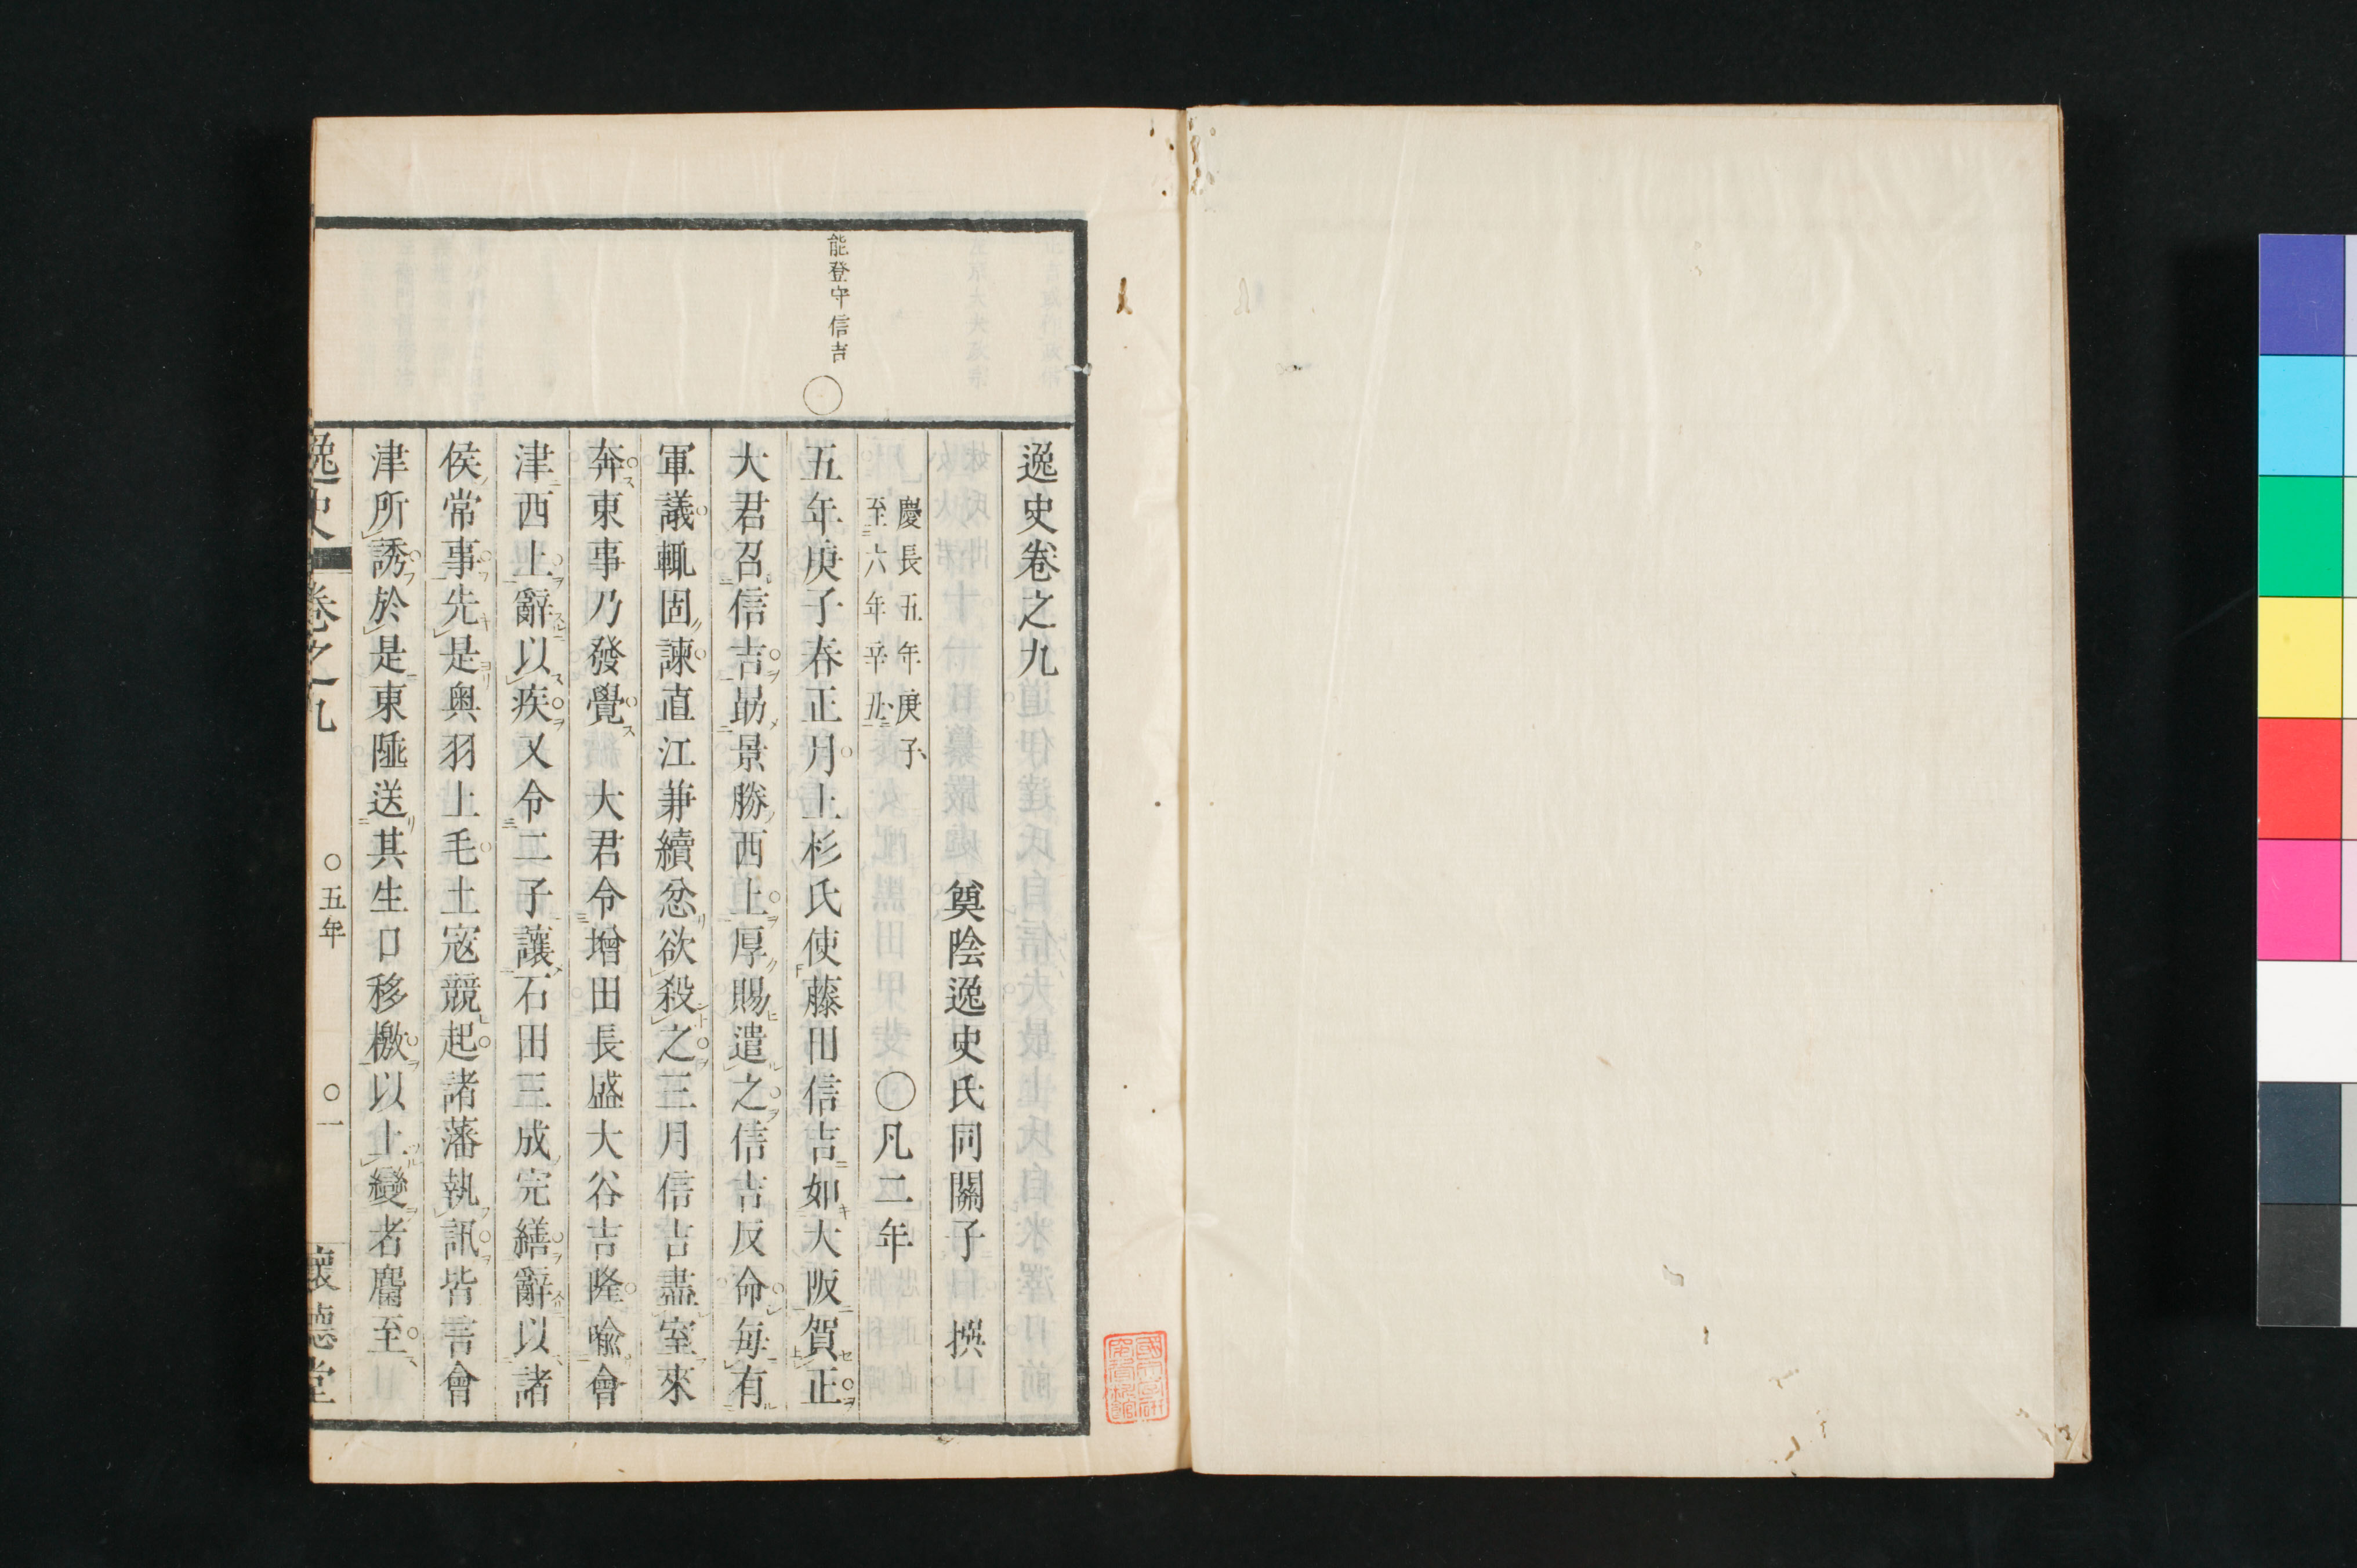 逸史卷之九
奠陰逸史氏同關子 撰
慶長五年庚子
至六年辛丑
○凡二年
能登守信吉
○
五年庚子春正月上杉氏使藤田信吉如大阪賀正
大君召信吉勗景勝西上厚賜遣之信吉反命每有
軍議輒固諫直江兼續忿欲殺之三月信吉盡室來
奔東事乃發覺 大君令增田長盛大谷吉隆喩會
津西上辭以疾又令二子讓石田三成完繕辭以諸
侯常事先是奧羽上毛土寇競起諸藩執訊皆言會
津所誘於是東陲送其生口移檄以上變者麕至
逸史 卷之九 ○五年 ○一 懷德堂